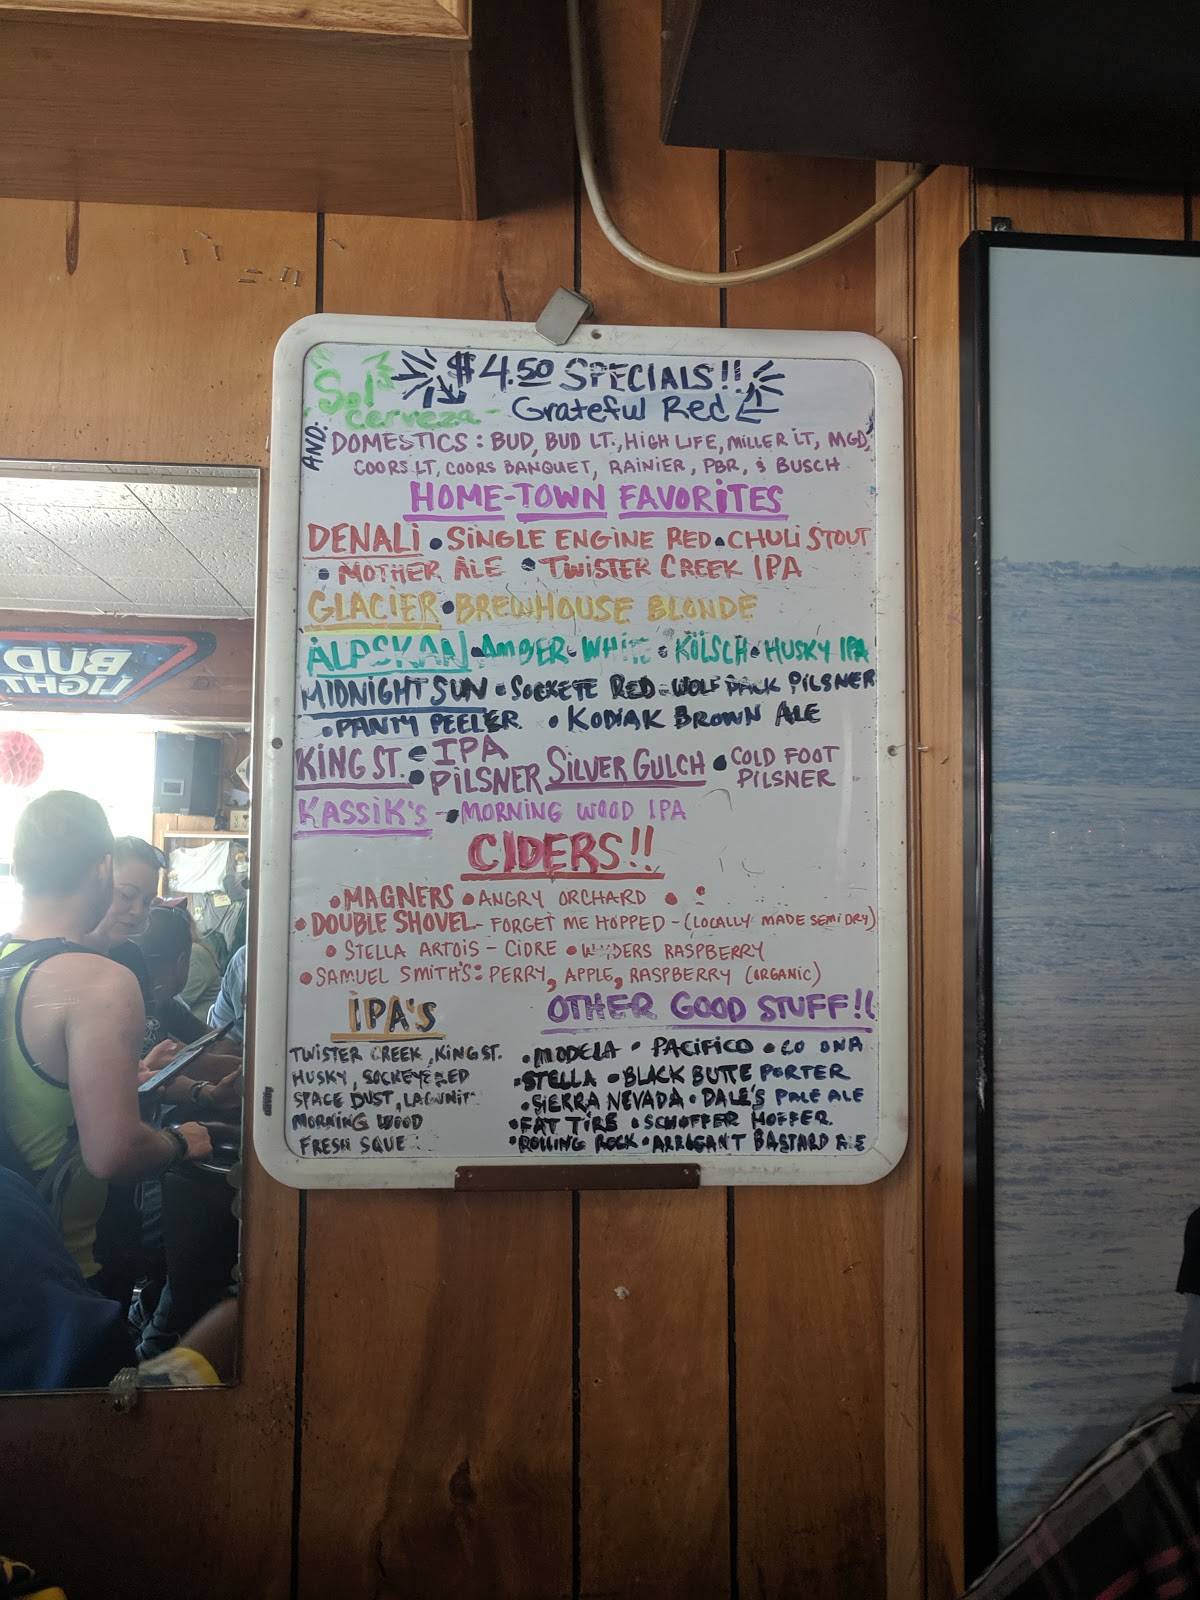 $4.50 SPECIALS!!
Sol Cerveza - Grateful Red
AND: DOMESTICS: BUD, BUD LT., HIGH LIFE, MILLER LT, MGD,
COORS LT, COORS BANQUET, RAINIER, PBR, & BUSCH
HOME-TOWN FAVORITES
DENALI • SINGLE ENGINE RED • CHULI STOUT
• MOTHER ALE • TWISTER CREEK IPA
GLACIER • BREWHOUSE BLONDE
ALASKAN • AMBER • WHITE • KÖLSCH • HUSKY IPA
MIDNIGHT SUN • SOCKEYE RED • WOLF PACK PILSNER
• PANTY PEELER • KODIAK BROWN ALE
KING ST. • IPA
• PILSNER SILVER GULCH • COLD FOOT PILSNER
KASSIK'S - • MORNING WOOD IPA
CIDERS!!
• MAGNERS • ANGRY ORCHARD •
• DOUBLE SHOVEL - FORGET ME HOPPED - (LOCALLY MADE SEMI DRY)
• STELLA ARTOIS - CIDRE • WYDERS RASPBERRY
• SAMUEL SMITH'S: PERRY, APPLE, RASPBERRY (ORGANIC)
IPA'S
TWISTER CREEK, KING ST.
HUSKY, SOCKEYE RED
SPACE DUST, LAGUNIT
MORNING WOOD
FRESH SQUE
OTHER GOOD STUFF!!
• MODELA • PACIFICO • CO ONA
• STELLA • BLACK BUTTE PORTER
• SIERRA NEVADA • DALE'S PALE ALE
• FAT TIRE • SCHOFFER HOFFER
• ROLLING ROCK • ARROGANT BASTARD ALE
BUD
LIGHT